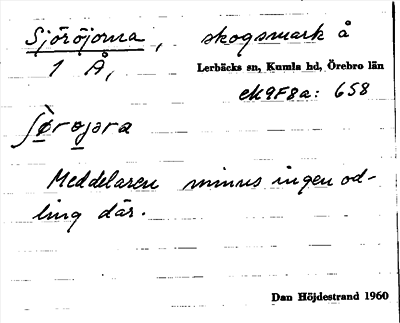 Sjöröjorna, skogsmark å
1 Å, Lerbäcks sn, Kumla hd, Örebro län
ek 9F8a: 658
ʃø̀røjəra
Meddelaren minns ingen od-
ling där.
Dan Höjdestrand 1960